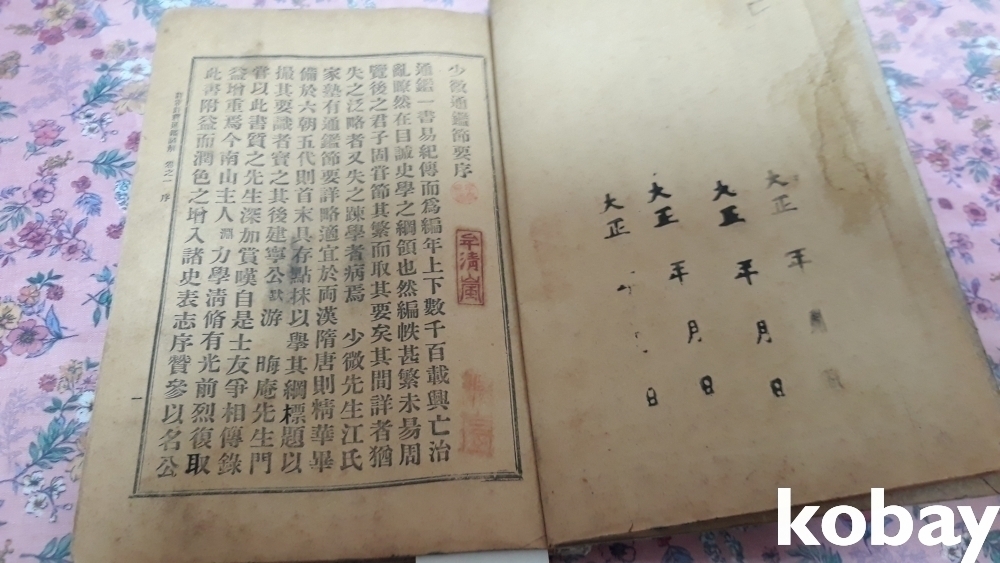 大正 年
大正 年 月 日
大正 年 月 日
大正 日
少微通鑑節要序
通鑑一書易紀傳而爲編年上下數千百載興亡治
亂瞭然在目誠史學之綱領也然編帙甚繁未易周
覽後之君子固嘗節其繁而取其要矣其間詳者猶
失之泛略者又失之疎學者病焉 少微先生江氏
家塾有通鑑節要詳略適宜於兩漢隋唐則精華畢
備於六朝五代則首末具存點抹以擧其綱標題以
撮其要識者寶之其後建寧公默游 晦庵先生門
嘗以此書質之先生深加賞嘆自是士友爭相傳錄
益增重焉今南山主人淵力學淸脩有光前烈復取
此書附益而潤色之增入諸史表志序贊參以名公
卷之一 序
一
kobay